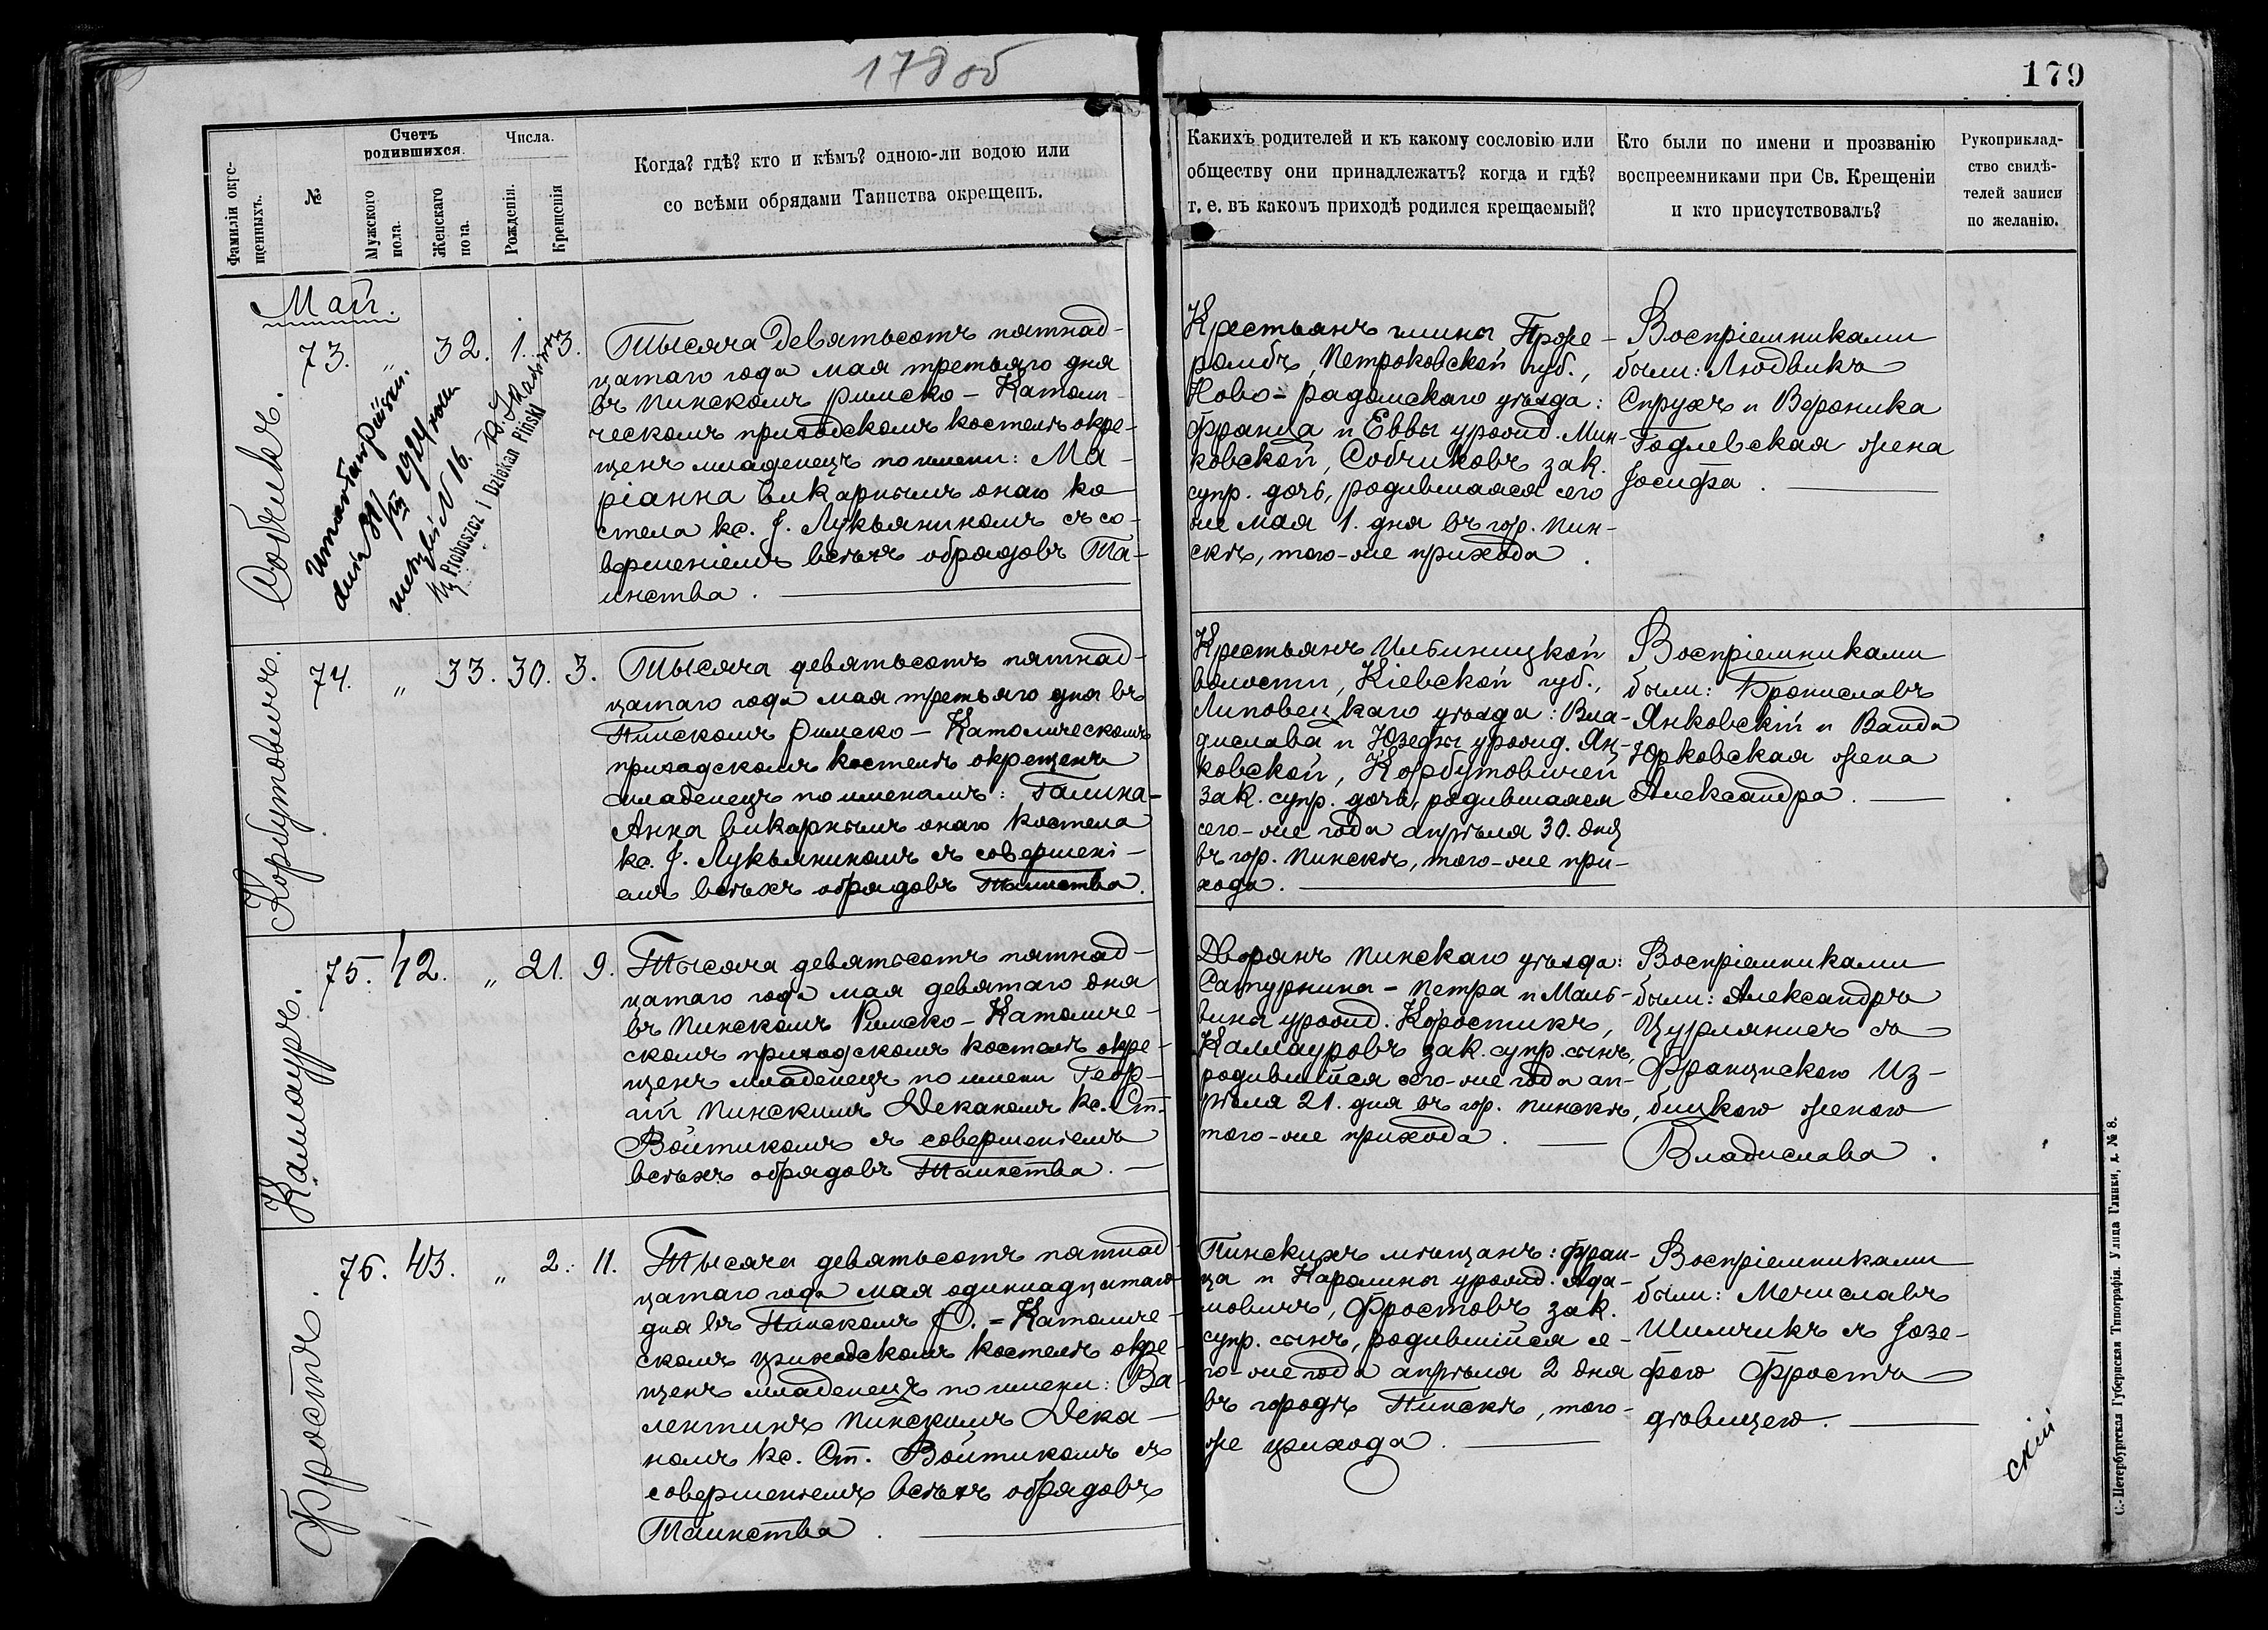 178 об
179
Фамиліи окре-
щенныхъ.
№
Счетъ
родившихся.
Мужскаго
пола.
Женскаго
пола.
Числа.
Рожденія.
Крещенія
Когда? гдѣ? кто и кѣмъ? одною-ли водою или
со всѣми обрядами Таинства окрещенъ.
Какихъ родителей и къ какому сословію или
обществу они принадлежатъ? когда и гдѣ?
т. е. въ какомъ приходѣ родился крещаемый?
Кто были по имени и прозванію
воспреемниками при Св. Крещеніи
и кто присутствовалъ?
Рукоприклад-
ство свидѣ-
телей записи
по желанію.
Май.
Собчикъ.
73. „ 32. 1. 3.
dnia
1924
N 16.
Proboszcz i Dziekan Piński
Тысяча девятьсотъ пятнад-
цатаго года мая третьяго дня
въ Пинскомъ римско-Католи-
ческомъ приходскомъ костелѣ окре-
щенъ младенецъ по имени: Ма-
ріанна викарнымъ онаго ко-
стела кс. І. Лукьяниномъ съ со-
вершеніемъ всѣхъ обрядовъ Та-
инства.
Крестьянъ гмины
Петроковской губ.,
Ново-радомскаго уѣзда:
Франца и Еввы урожд. Мин-
ковской, Собчиковъ зак.
супр. дочь, родившаяся сего
же мая 1. дня въ гор. Пин-
скѣ, того-же прихода.
Воспріемниками
были: Людвикъ
Спрухъ и Вероника
Годлевская жена
Іосифа.
Корбутовичъ.
74. „ 33. 30. 3.
Тысяча девятьсотъ пятнад-
цатаго года мая третьяго дня въ
Пинскомъ римско-Католическомъ
приходскомъ костелѣ окрещенъ
младенецъ по именамъ: Галина-
Анна викарнымъ онаго костела
кс. І. Лукьяниномъ съ совершені-
емъ всѣхъ обрядовъ Таинства.
Крестьянъ
волости, Кіевской губ.,
Липовецкаго уѣзда: Вла-
дислава и Юзефы урожд. Ян-
ковской, Корбутовичей
зак. супр. дочь, родившаяся
сего-же года апрѣля 30. дня
въ гор. Пинскѣ, того-же при-
хода.
Воспріемниками
были: Брониславъ
Янковскій и Ванда
Юрковская жена
Александра.
Каллауръ.
75. 42. „ 21. 9.
Тысяча девятьсотъ пятнад-
цатаго года мая девятаго дня
въ Пинскомъ Римско-Католиче-
скомъ приходскомъ костелѣ окре-
щенъ младенецъ по имени Геор-
гій Пинскимъ Деканомъ кс. Ст.
Войтикомъ съ совершеніемъ
всѣхъ обрядовъ Таинства.
Дворянъ Пинскаго уѣзда:
Сатурнина-Петра и Маль-
вина урожд. Коростикъ,
Каллауровъ зак. супр. сынъ,
родившійся сего-же года ап-
рѣля 21. дня въ гор. Пинскѣ,
того-же прихода.
Воспріемниками
были: Александръ
Цурлянисъ съ
Францискою Из-
бицкою женою
Владислава.
Фростъ.
76. 43. „ 2. 11.
Тысяча девятьсотъ пятнад-
цатаго года мая одиннадцатаго
дня въ Пинскомъ Р.=Католиче-
скомъ приходскомъ костелѣ окре-
щенъ младенецъ по имени: Ва-
лентинъ Пинскимъ Дека-
номъ кс. Ст. Войтикомъ съ
совершеніемъ всѣхъ обрядовъ
Таинства.
Пинскихъ мѣщанъ: Фран-
ца и Каролины урожд. Ада-
мовичъ, Фростовъ зак.
супр. сынъ, родившійся се-
го-же года апрѣля 2 дня
въ городѣ Пинскѣ, того-
же прихода.
Воспріемниками
были: Мечиславъ
Шимчикъ съ Іозе-
фою Фростъ
дѣвицею.
скій
С.-Петербургская Губернская Типографія. Улица Глинки, д. № 8.